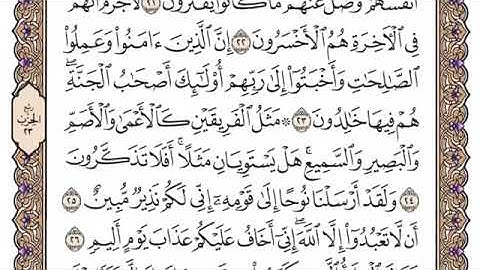 أَنفُسَهُمْ وَضَلَّ عَنْهُم مَّا كَانُوا۟ يَفْتَرُونَ ٢١ لَا جَرَمَ أَنَّهُمْ
فِى ٱلْـَٔاخِرَةِ هُمُ ٱلْأَخْسَرُونَ ٢٢ إِنَّ ٱلَّذِينَ ءَامَنُوا۟ وَعَمِلُوا۟
ٱلصَّـٰلِحَـٰتِ وَأَخْبَتُوٓا۟ إِلَىٰ رَبِّهِمْ أُو۟لَـٰٓئِكَ أَصْحَـٰبُ ٱلْجَنَّةِ ۖ
هُمْ فِيهَا خَـٰلِدُونَ ٢٣ ۞ مَثَلُ ٱلْفَرِيقَيْنِ كَٱلْأَعْمَىٰ وَٱلْأَصَمِّ
وَٱلْبَصِيرِ وَٱلسَّمِيعِ ۚ هَلْ يَسْتَوِيَانِ مَثَلًا ۚ أَفَلَا تَذَكَّرُونَ
٢٤ وَلَقَدْ أَرْسَلْنَا نُوحًا إِلَىٰ قَوْمِهِۦٓ إِنِّى لَكُمْ نَذِيرٌ مُّبِينٌ ٢٥
أَن لَّا تَعْبُدُوٓا۟ إِلَّا ٱللَّهَ ۖ إِنِّىٓ أَخَافُ عَلَيْكُمْ عَذَابَ يَوْمٍ أَلِيمٍ ٢٦
ربع
الحزب
٢٣